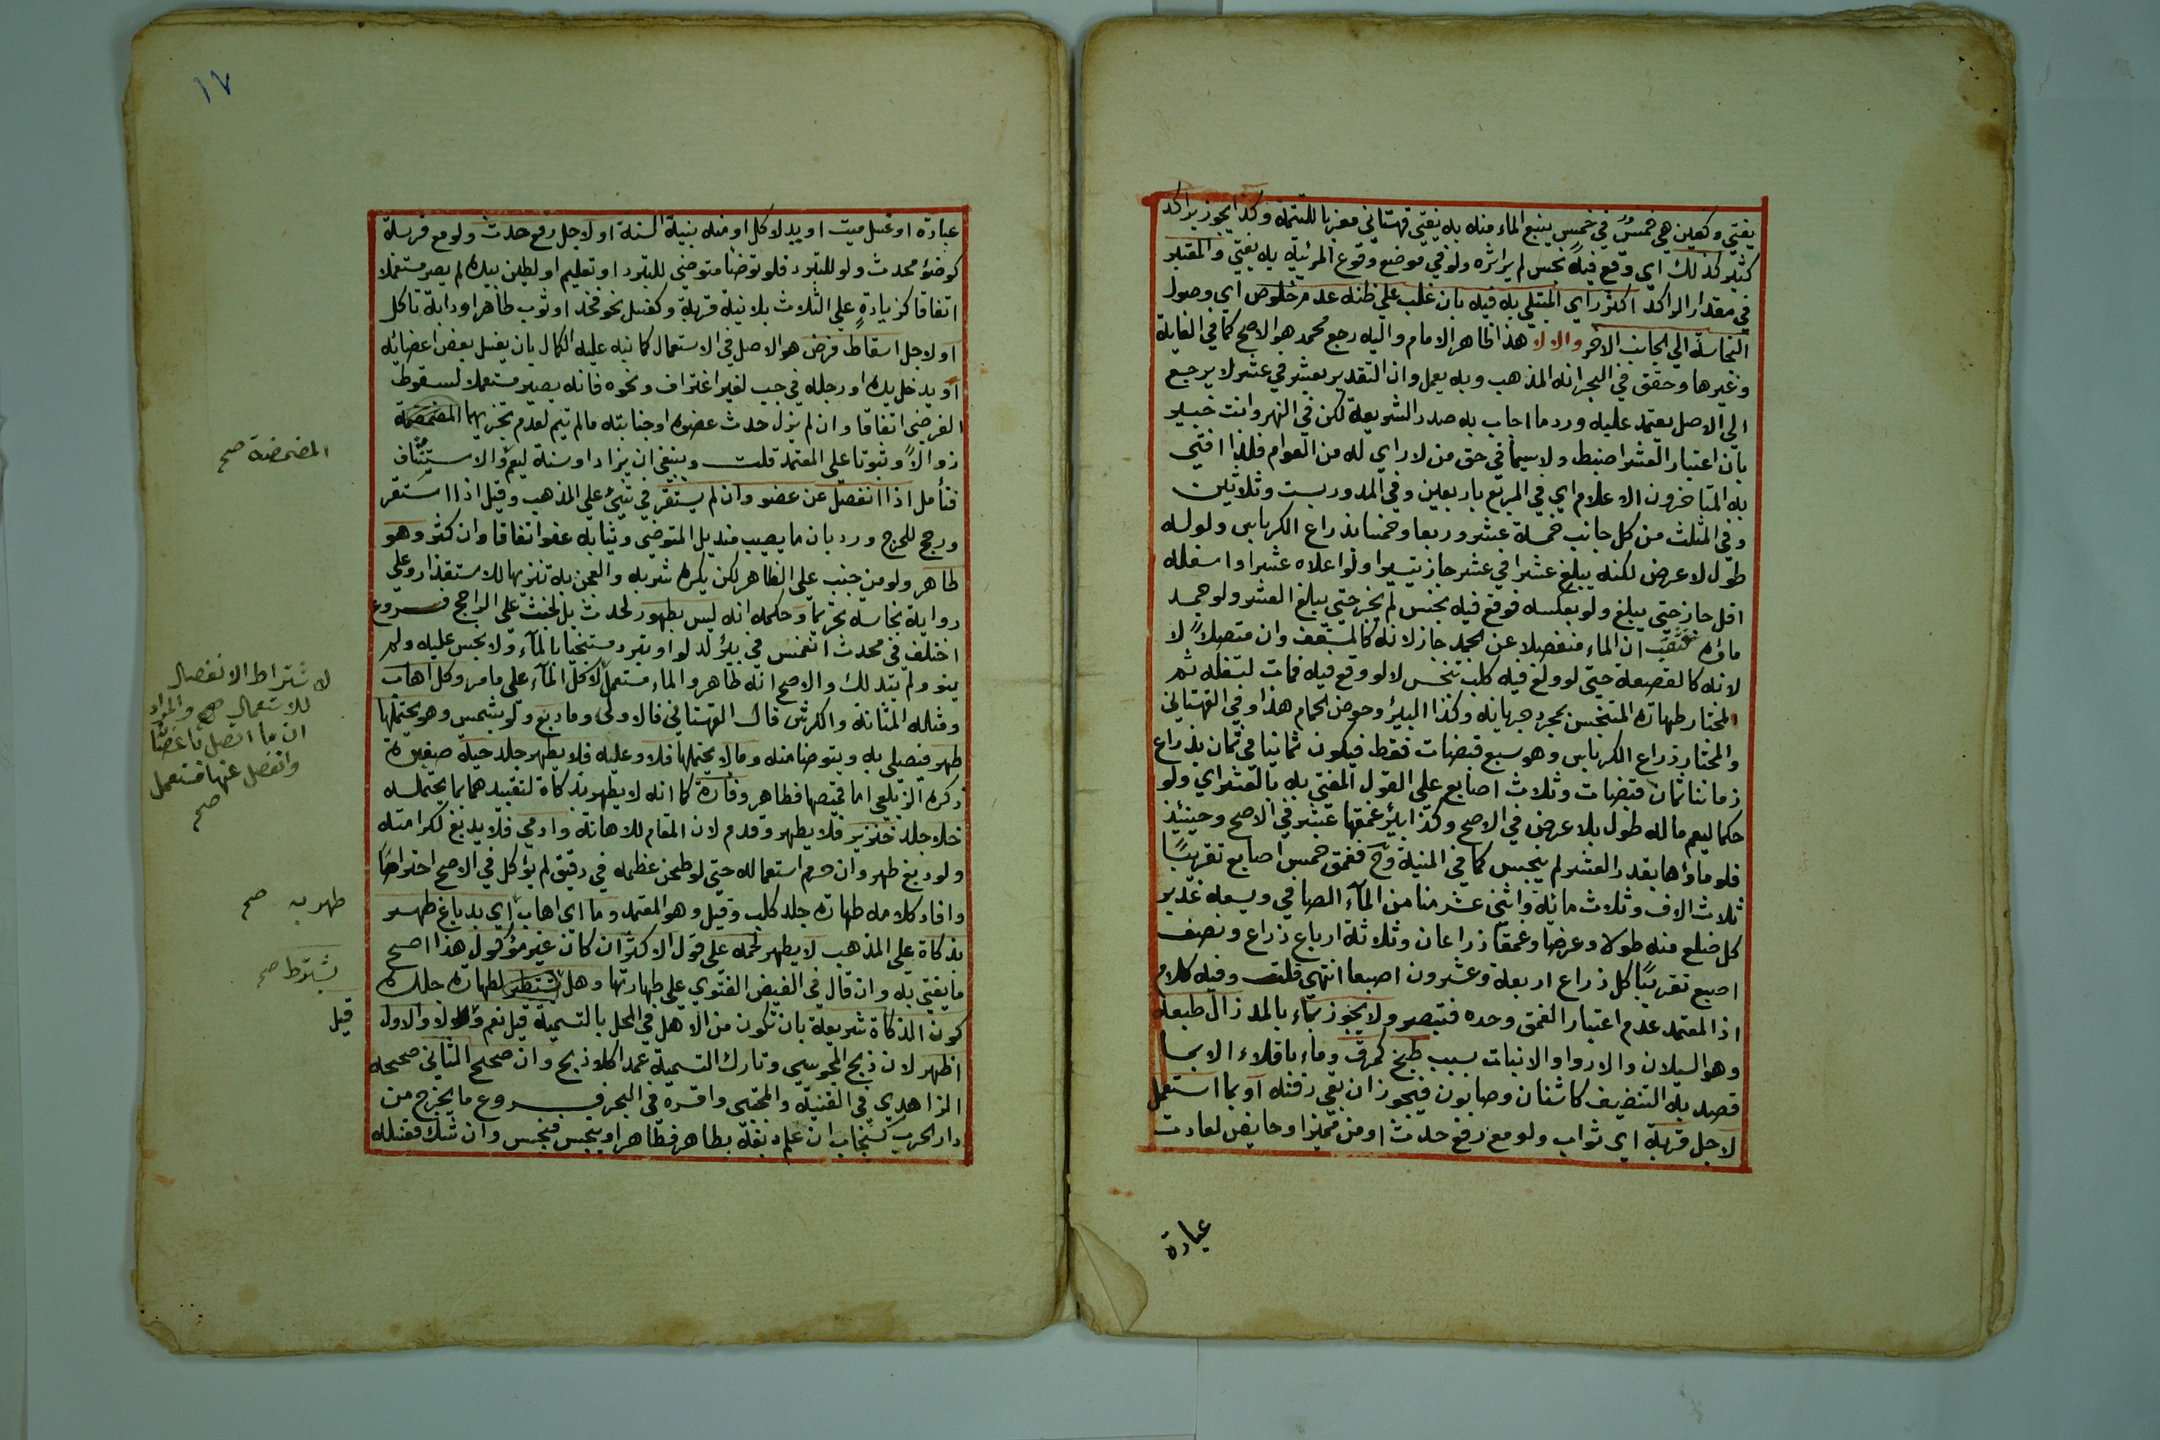 يفتي وكعين هي خمس في خمس ينبع الماء منه به يفتي قهستاني معزيا للتتمة وكذا يجوز براكد
كثير كذلك اي وقع فيه نجس لم ير اثره ولو في موضع وقوع المرئية به يفتي والمعتبر
في مقدار الراكد اكثر راي المبتلي به فيه بان غلب علي ظنه عدم خلوص اي وصول
النجاسة الي الجانب الاخر والا لا هذا ظاهر الامام واليه رجع محمد هو الاصح كما في الغاية
وغيرها وحقق في البحر انه المذهب وبه يعمل وان التقدير بعشر في عشر لا يرجع
الي اصل يعتمد عليه ورد ما اجاب به صدر الشريعة لكن في النهر وانت خبير
بان اعتبار العشر اضبط ولا سيما في حق من لا راي له من العوام فلذا افتي
به المتاخرون الاعلام اي في المربع باربعين وفي المدور بست وثلاثين
وفي المثلث من كل جانب خمسة عشر وربعا وخمسا بذراع الكرباس ولو له
طول لا عرض لكنه يبلغ عشرا في عشر جاز تيسيرا ولو اعلاه عشرا واسفله
اقل جاز حتي يبلغ ولو بعكسه فوقع فيه نجس لم يجز حتي يبلغ العشر ولو جمد
ماؤه فثقب ان الماء منفصلا عن الجمد جاز لانه كالمسقف وان متصلا لا
لانه كالقصعة حتي لو ولغ فيه كلب تنجس لا لو وقع فيه فمات لتسفله ثم
المختار طهارة المتنجس بمجرد جريانه وكذا البير وحوض الحمام هذا وفي القهستاني
والمختار ذراع الكرباس وهو سبع قبضات فقط فيكون ثمانيا في ثمان بذراع
زماننا ثمان قبضات وثلاث اصابع علي القول المفتي به بالعشر اي ولو
حكما ليعم ماله طول بلا عرض في الاصح وكذا بئر عمقها عشر في الاصح وحينئذ
فلو ماؤها بقدر العشر لم ينجس كما في المنية وح فعمق خمس اصابع تقريبا
ثلاث الاف وثلاث مائة واثني عشر منا من الماء الصافي ويسعه غدير
كل ضلع منه طولا وعرضا وعمقا ذراعان وثلاثة ارباع ذراع ونصف
اصبع تقريبا كل ذراع اربعة وعشرون اصبعا انتهي قلت وفيه كلام
اذ المعتمد عدم اعتبار العمق وحده فتبصر ولا يجوز بماء بالمد زال طبعه
وهو السيلان والاروا والانبات بسبب طبخ كمرق وماء باقلاء الا بما
قصد به التنضيف كاشنان وصابون فيجوز ان بقي رقته او بما استعمل
لاجل قربة اي ثواب ولو مع رفع حدث او من مميز او حايض لعادت
عبادة
١٧
عبادة او غسل ميت او يد لاكل او منه بنية السنة او لاجل رفع حدث ولو مع قربة
كوضؤ محدث ولو للتبرد فلو توضا متوضي للتبرد او تعليم او لطين بيده لم يصر مستعملا
اتفاقا كزيادة علي الثلاث بلا نية قربة وكغسل نحو فخذ او ثوب طاهر او دابة تاكل
او لاجل اسقاط فرض هو الاصل في الاستعمال كما نبه عليه الكمال بان يغسل بعض اعضائه
او يدخل يده او رجله في حب لغير اغتراف ونحوه فانه يصير مستعملا لسقوط
الفرض اتفاقا وان لم يزل حدث عضوه او جنابته ما لم تتم لعدم تجزيهما المضمضة
زوالا وثبوتا علي المعتمد قلت وينبغي ان يزاد او سنة ليعم والاستنثاف
فتأمل اذا انفصل عن عضو وان لم يستقر في شئ علي المذهب وقيل اذا استقر
ورجح للحرج ورد بان ما يصيب منديل المتوضي وثيابه عفو اتفاقا وان كثر وهو
طاهر ولو من جنب علي الظاهر لكن يكره شربه والعجن به تنزيها للاستقذار وعلي
رواية نجاسه تحريما وحكمه انه ليس بطهور لحدث بل لخبث علي الراجح فروع
اختلف في محدث انغمس في بئر لدلو او تبرد مستنجيا بالماء ولا نجس عليه ولم
ينو ولم يتدلك والاصح انه طاهر والماء مستعمل لا كل الماء علي ما مر وكل اهاب
ومثله المثانة والكرش قال القهستاني فالاولي وما دبغ ولو بشمس وهو يحتملها
طهر فيصلي به ويتوضا منه وما لا يحتملها فلا وعليه فلا يطهر جلد حية صغيرة
ذكره الزيلعي اما قميصها فطاهر وفارة كما انه لا يطهر بذكاة لتقييدهما بما يحتمله
خلا جلد خنزير فلا يطهر وقدم لان المقام للاهانة وادمي فلا يدبغ لكرامته
ولو دبغ طهر وان حرم استعماله حتي لو طحن عظمه في دقيق لم يؤكل في الاصح احتراما
وافاد كلامه طهارة جلد كلب وفيل وهو المعتمد وما اي اهاب اي بدباغ طهر
بذكاة علي المذهب لا يطهر لحمه علي قول الاكثر ان كان غير مؤكول هذا اصح
ما يفتي به وان قال في الفيض الفتوي علي طهارتها وهل لطهارة جلده
كون الذكاة شرعية بان تكون من الاهل في المحل بالتسمية قيل نعم و لا والاول
اظهر لان ذبح المجوسي وتارك التسمية عمدا كلا ذبح وان صحح الثاني صححه
الزاهدي في القنية والمجتبي واقره في البحر فروع ما يخرج من
دار الحرب كسنجاب ان علم دبغه بطاهر فطاهر او بنجس فنجس وان شك فغسله
المضمضة صح
لاشتراط الانفصال
للاستعمال صح والمراد
ان ما اتصل باعضا
وانفصل عنها مستعمل
صح
طهر به صح
يشترط صح
قيل